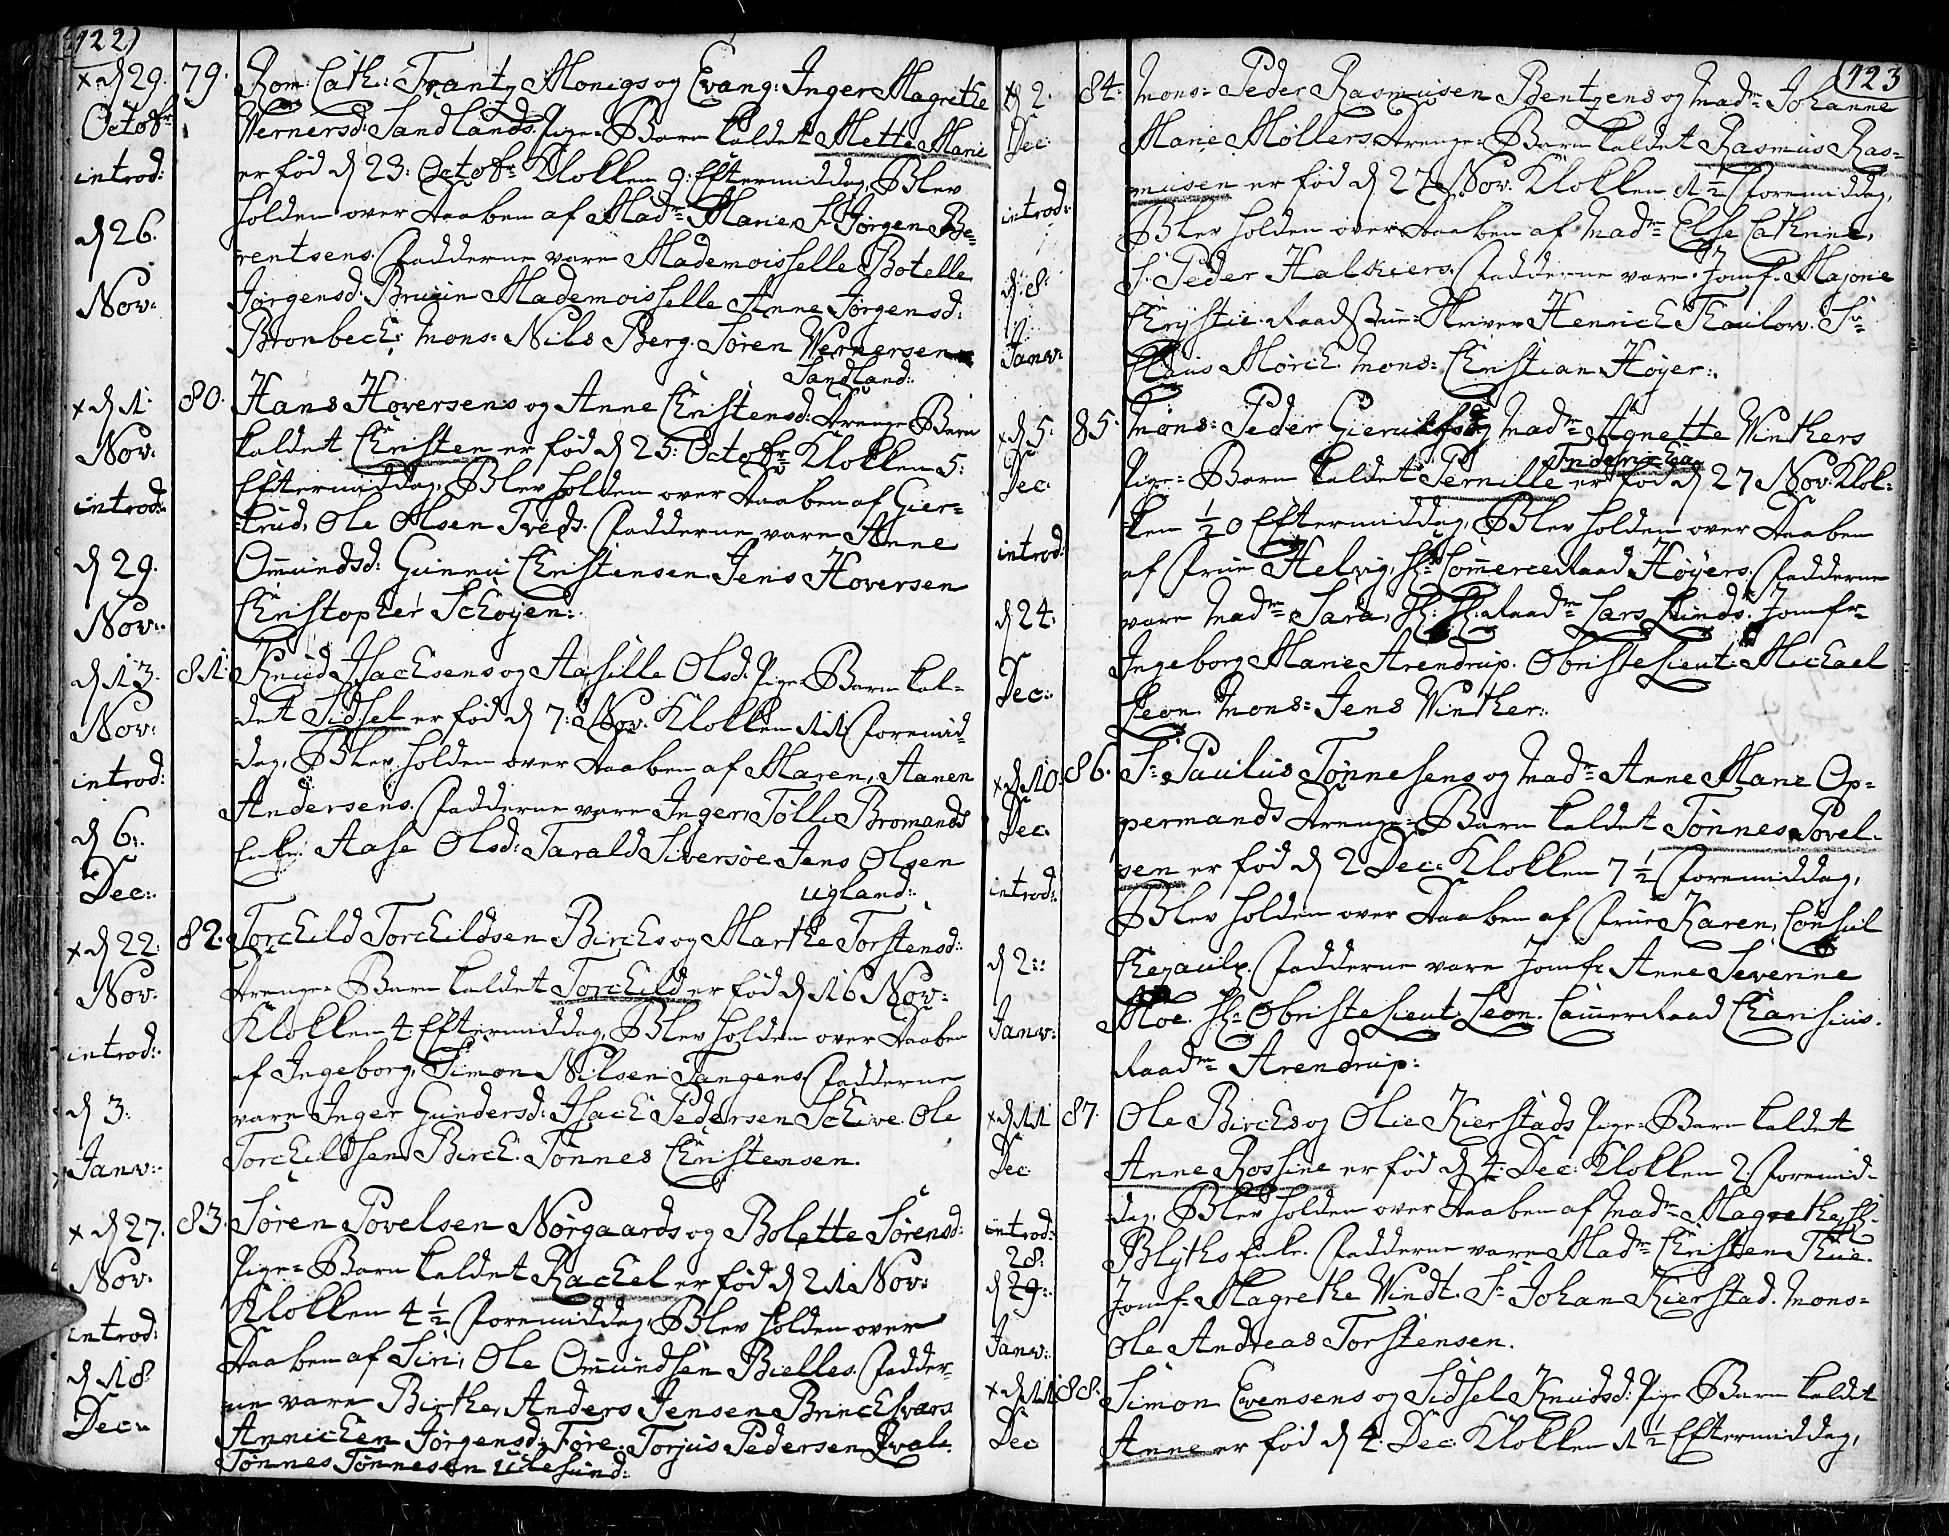 122)
× d 29. Octobr introd: d 26. Nov:
79. Rom: Cath: Frantz Monigs og Evang: Inger Magrethe
Wernersd: Sandlands Pige-Barn kaldet Mette Marie
er fød d 23: Octobr Klokken 9: Eftermiddag, Blev
holden over Daaben af Madme Marie, Sr Jørgen Be=
rentsens. Fadderne vare Mademoisselle Botelle
Jørgensd: Bruun Mademoisselle Anne Jørgensd:
Bronbech: Mons: Nils Berg. Søren Wernersen
Sandland:
× d 1. Nov: introd: d 29. Nov:
80. Hans Hoversens og Anne Christensd: Drenge-Barn
kaldet Christen er fød d 25: Octobr Klokken 5:
Eftermiddag, Blev holden over Daaben af Gier=
trud, Ole Olsen Tveds. Fadderne vare Anne
Omundsd: Gunnu: Christensen Jens Hoversen
Christopher Schøyen:
d 13. Nov: introd: d 6: Dec:
81. Knud Isachsens og Aasille Olsd: Pige-Barn kal=
det Sidsel er fød d 7: Nov: Klokken 11 Formid=
dag, Blev holden over Daaben af Maren, Aanen
Andersens. Fadderne vare Inger, Tølli Bromands
Enke: Aase Olsd: Tarald Siversøe Jens Olsen
Ugland:
× d 22. Nov: introd: d 3. Janv:
82. Torchild Torchildsen Birchs og Marthe Torstensd:
Drenge-Barn kaldet Torchild er fød d 16 Nov:
Klokken 4: Eftermiddag, Blev holden over Daaben
af Ingeborg, Simon Nilsen Tangens. Fadderne
vare Inger Gundersd: Isach Pedersen Schive Ole
Torchildsen Birch. Tønnes Christensen.
× d 27. Nov: introd: d 18. Dec:
83. Søren Povelsen Nørgaards og Bolette Sørensd:
Pige-Barn kaldet Rachel er fød d 21 Nov:
Klokken 4 1/2 Formiddag, Blev holden over
Daaben af Siri, Ole Omundsen Bielles. Fadder=
ne vare Birthe, Anders Jensen Brinchsværs
Annichen Jørgensd: Føre: Torjus Pedersen Qvale
Tønnes Tønnesen Ulesund:
(123
× d 2. Dec: introd: d 8: Janv:
84. Mons: Peder Rasmusen Bentzens og Madme Johanne
Marie Møllers Drenge-Barn kaldet Rasmus Ras=
musen er fød d 27 Nov: Klokken 1 1/2 Formiddag,
Blev holden over Daaben af Madme Else Cathrine,
Sr Peder Kalkiers. Fadderne vare Jomfr Majorie
Chrystie. Raadstue-Skriver Henrich Thaulow. Sr
Claus Mørch. Mons: Christian Høyer:
× d 5. Dec: introd: d 24. Dec:
85. Mons: Peder og Madme Agnette Winthers
Friderikaa
Pige-Barn kaldet Pernille er fød d 27 Nov: Klok=
ken 1/2 0 Eftermiddag, Blev holden over Daaben
af Frue Helvig, Hr Commerce Raad Høyers. Fadderne
vare Madme Sara, Raadm Lars Lunds. Jomfr
Ingeborg Marie Arendrup. Obriste Lieut: Michael
Leon. Mons: Jens Winther:
× d 10. Dec: introd: d 2: Janv:
86. Sr Paulus Tønnesens og Madme Anne Marie Op=
permands Drenge-Barn kaldet Tønnes Povel=
sen er fød d 2 Dec: Klokken 7 1/2 Formiddag,
Blev holden over Daaben af Frue Karen, Consul
Chezaulx. Fadderne vare Jomfr Anne Severine
Moe. Hr Obriste Lieut: Leon. Cammer Raad Charisius.
Raadm Arendrup:
× d 11 Dec introd: 28: d 29. Janv:
87. Ole Birchs og Olie Kierstads Pige-Barn kaldet
Anne Rossine er fød d 4. Dec: Klokken 2. Formid=
dag, Blev holden over Daaben af Madme Magrethe, Hr
Blyths Enke. Fadderne vare Madme Christen Thue.
Jomfr Magrethe Windt. Sr Johan Kierstad. Mons:
Ole Andreas Torstensen.
× d 11 Dec
88. Simon Evensens og Sidsel Knudsd: Pige-Barn kaldet
Anne er fød d 4. Dec: Klokken 1 1/2 Eftermiddag,